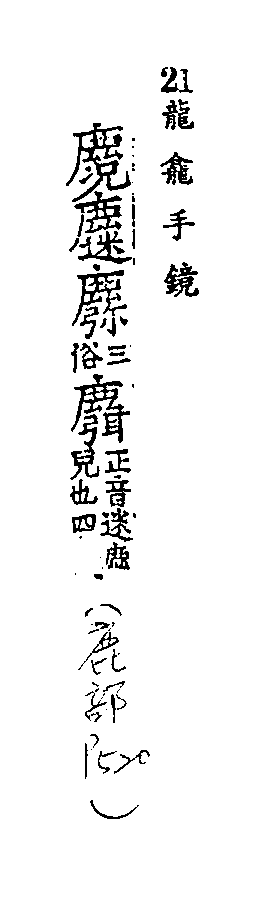 21龍龕手鏡
三俗麛正音迷鹿兒也四
(鹿部P520)